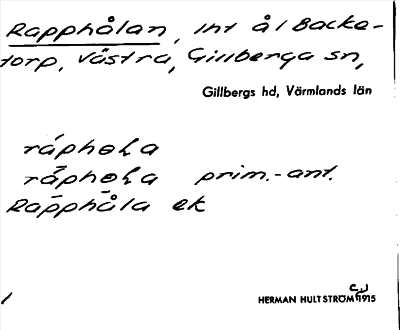 Rapphålan, Int å l Backe-
torp, Västra, Gillberga sn,
Gillbergs hd, Värmlands län
ráphoḷa
prim.-ant.
Rapphåla ek
HERMAN HULTSTRÖM 1915